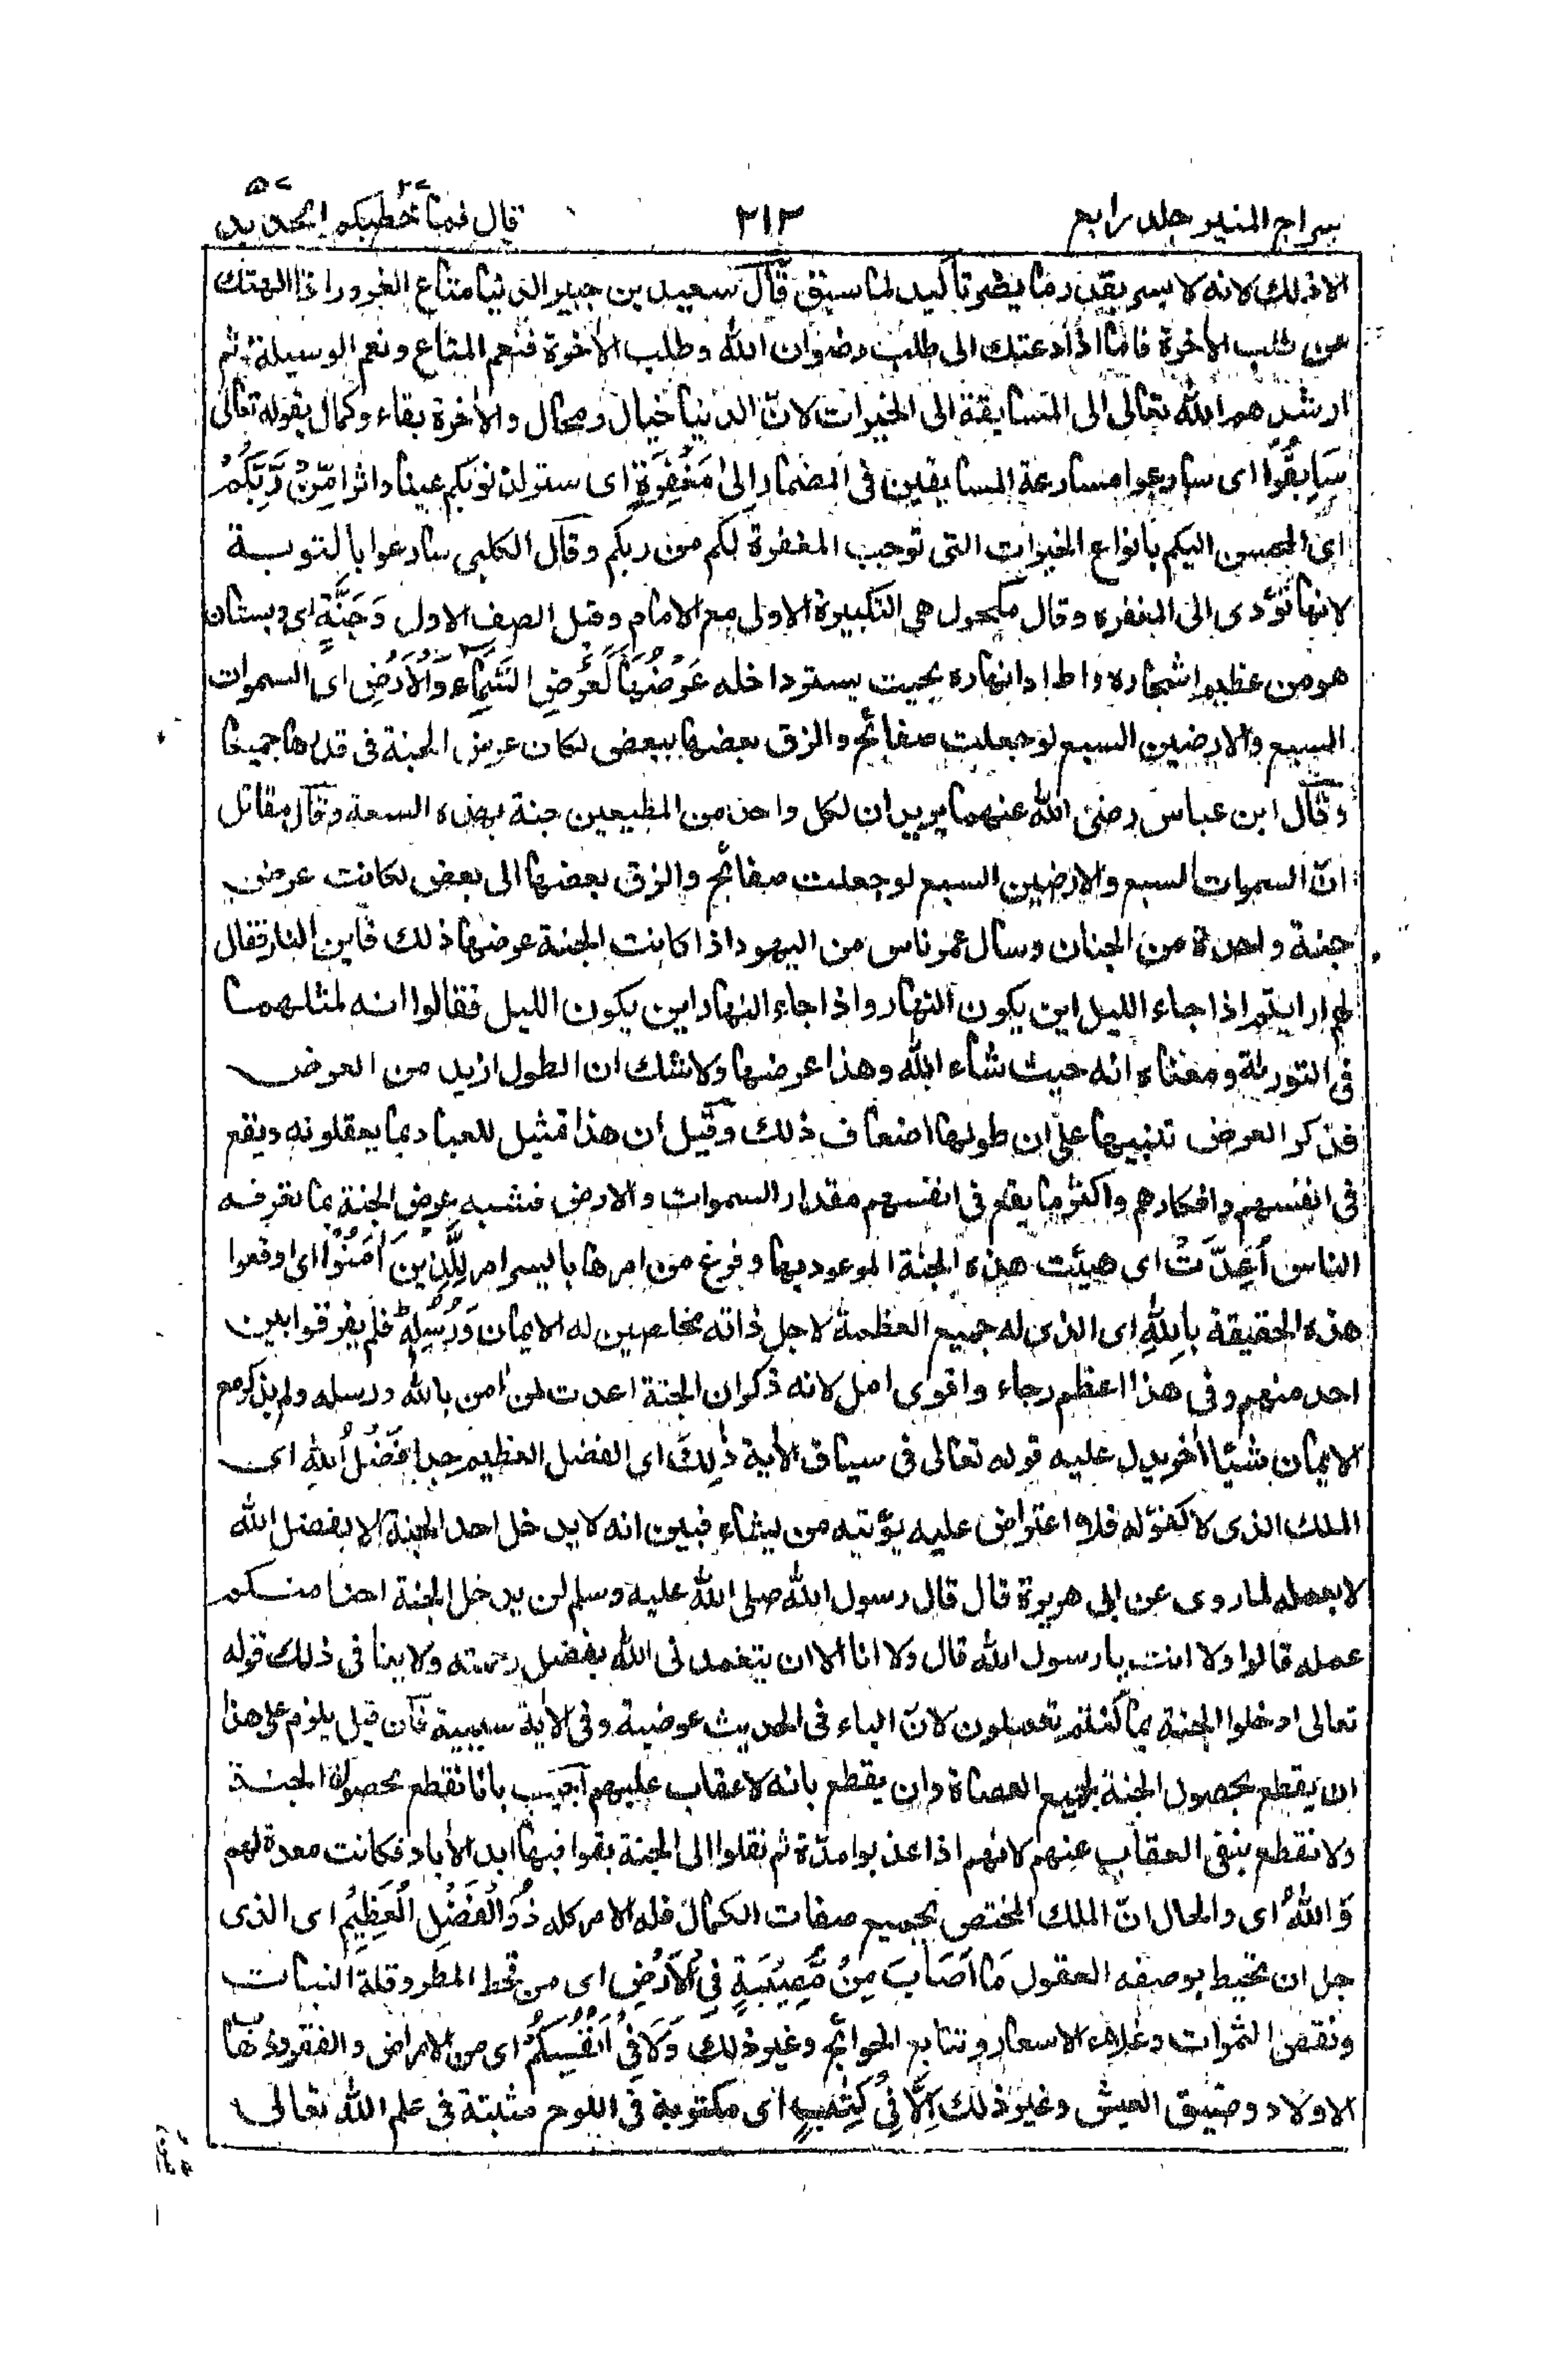 سراج المنير جلد رابع ٢١٣ قال فما خطبكم ٢٧ الحديد ٥٧
الا ذلك لانه لا يسر بقدر ما يضر تاكيد لما سبق قال سعيد بن جبير الدنيا متاع الغرور اذا الهتك
عن طلب الأخرة فامّا اذا دعتك الى طلب رضوان الله وطلب الأخرة فنعم المتاع ونعم الوسيلة ثم
ارشدهم الله تعالى الى المسابقة الى الخيرات لانّ الدنيا خيال ومحال والأخرة بقاء وكمال بقوله تعالى
سَابِقُوْا اى سارعوا مسارعة المسابقين فى المضمار اِلىٰ مَغْفِرَةٍ اى ستر لذنوبكم عينا واثرا مِّنْ رَّبِّكُمْ
اى المحسن اليكم بانواع الخيرات التى توجب المغفرة لكم من ربكم وقال الكلبى سارعوا بالتوبة
لانها تؤدى الى المغفره وقال مكحول هى التكبيرة الاولى مع الامام وقيل الصف الاول وَجَنَّةٍ اى وبستان
هو من عظيم اشجاره واطراد انهاره بحيث يستر داخله عَرْضُهَا كَعَرْضِ السَّمَآءِ وَالْاَرْضِ اى السموات
السبع والارضين السبع لو جعلت صفائح والزق بعضها ببعض لكان عرض الجنة فى قدرها جميعا
وقال ابن عباس رضى الله عنهما يريد ان لكل واحد من المطيعين جنة بهذه السعة وقال مقاتل
انّ السموات السبع والارضين السبع لو جعلت صفائح والزق بعضها الى بعض لكانت عرض
جنة واحدة من الجنان وسال عمر ناس من اليهود اذا كانت الجنة عرضها ذلك فاين النار فقال
لهم ارايتم اذا جاء الليل اين يكون النهار واذا جاء النهار اين يكون الليل فقالوا انه لمثلهما
فى التورىة ومعناه انه حيث شاء الله وهذا عرضها ولا شك ان الطول ازيد من العرض
فذكر العرض تنبيها على ان طولها اضعاف ذلك وقيل ان هذا تمثيل للعباد بما يعقلونه ويقع
فى انفسهم وافكارهم واكثر ما يقع فى انفسهم مقدار السموات والارض فشبه عرض الجنة بما تعرفه
الناس اُعِدَّتْ اى هيئت هذه الجنة الموعود بها وفرغ من امرها بايسر امر لِلَّذِيْنَ اٰمَنُوْا اى اوقعوا
هذه الحقيقة بِاللّٰهِ اى الذى له جميع العظمة لاجل ذاته مخلصين له الايمان وَرُسُلِهٖ فلم يفرقوا بين
احد منهم وفى هذا اعظم رجاء واقوى امل لانه ذكر ان الجنة اعدت لمن اٰمن بالله ورسله ولم يذكر مع
الايمان شيئا اٰخر يدل عليه قوله تعالى فى سياق الأية ذٰلِكَ اى الفضل العظيم جدا فَضْلُ اللّٰهِ اى
الملك الذى لا كفوّ له فلا اعتراض عليه يؤتيه من يشاء فبين انه لا يدخل احد الجنة الا بفضل الله
لا بعمله لما روى عن ابى هريرة قال قال رسول الله صلى الله عليه وسلم لن يدخل الجنة احدا منكم
عمله قالوا ولا انت يا رسول الله قال ولا انا الا ان يتغمدنى الله بفضل رحمته ولا ينافى ذلك قوله
تعالى ادخلوا الجنة بما كنتم تعملون لانّ الباء فى الحديث عوضية وفى الأية سببية فان قيل يلزم على هذا
ان يقطع بحصول الجنة لجميع العصاة وان يقطع بانه لا عقاب عليهم اجيب بانا نقطع بحصول الجنة
ولا نقطع بنفى العقاب عنهم لانهم اذا عذبوا مدّة ثم نقلوا الى الجنة بقوا فيها ابد الأباد فكانت معدة لهم
وَاللّٰهُ اى والحال انّ الملك المختص بجميع صفات الكمال فله الامر كله ذُو الْفَضْلِ الْعَظِيْمِ اى الذى
جل ان تحيط بوصفه العقول مَا اَصَابَ مِنْ مُّصِيْبَةٍ فِى الْاَرْضِ اى من قحط المطر وقلة النبات
ونقص الثمرات وغلاء الاسعار وتتابع الجوائح وغير ذلك وَلَا فِىْ اَنْفُسِكُمْ اى من الامراض والفقر وذهاب
الاولاد وضيق العيش وغير ذلك اِلَّا فِىْ كِتٰبٍ اى مكتوبة فى اللوح مثبتة فى علم الله تعالى